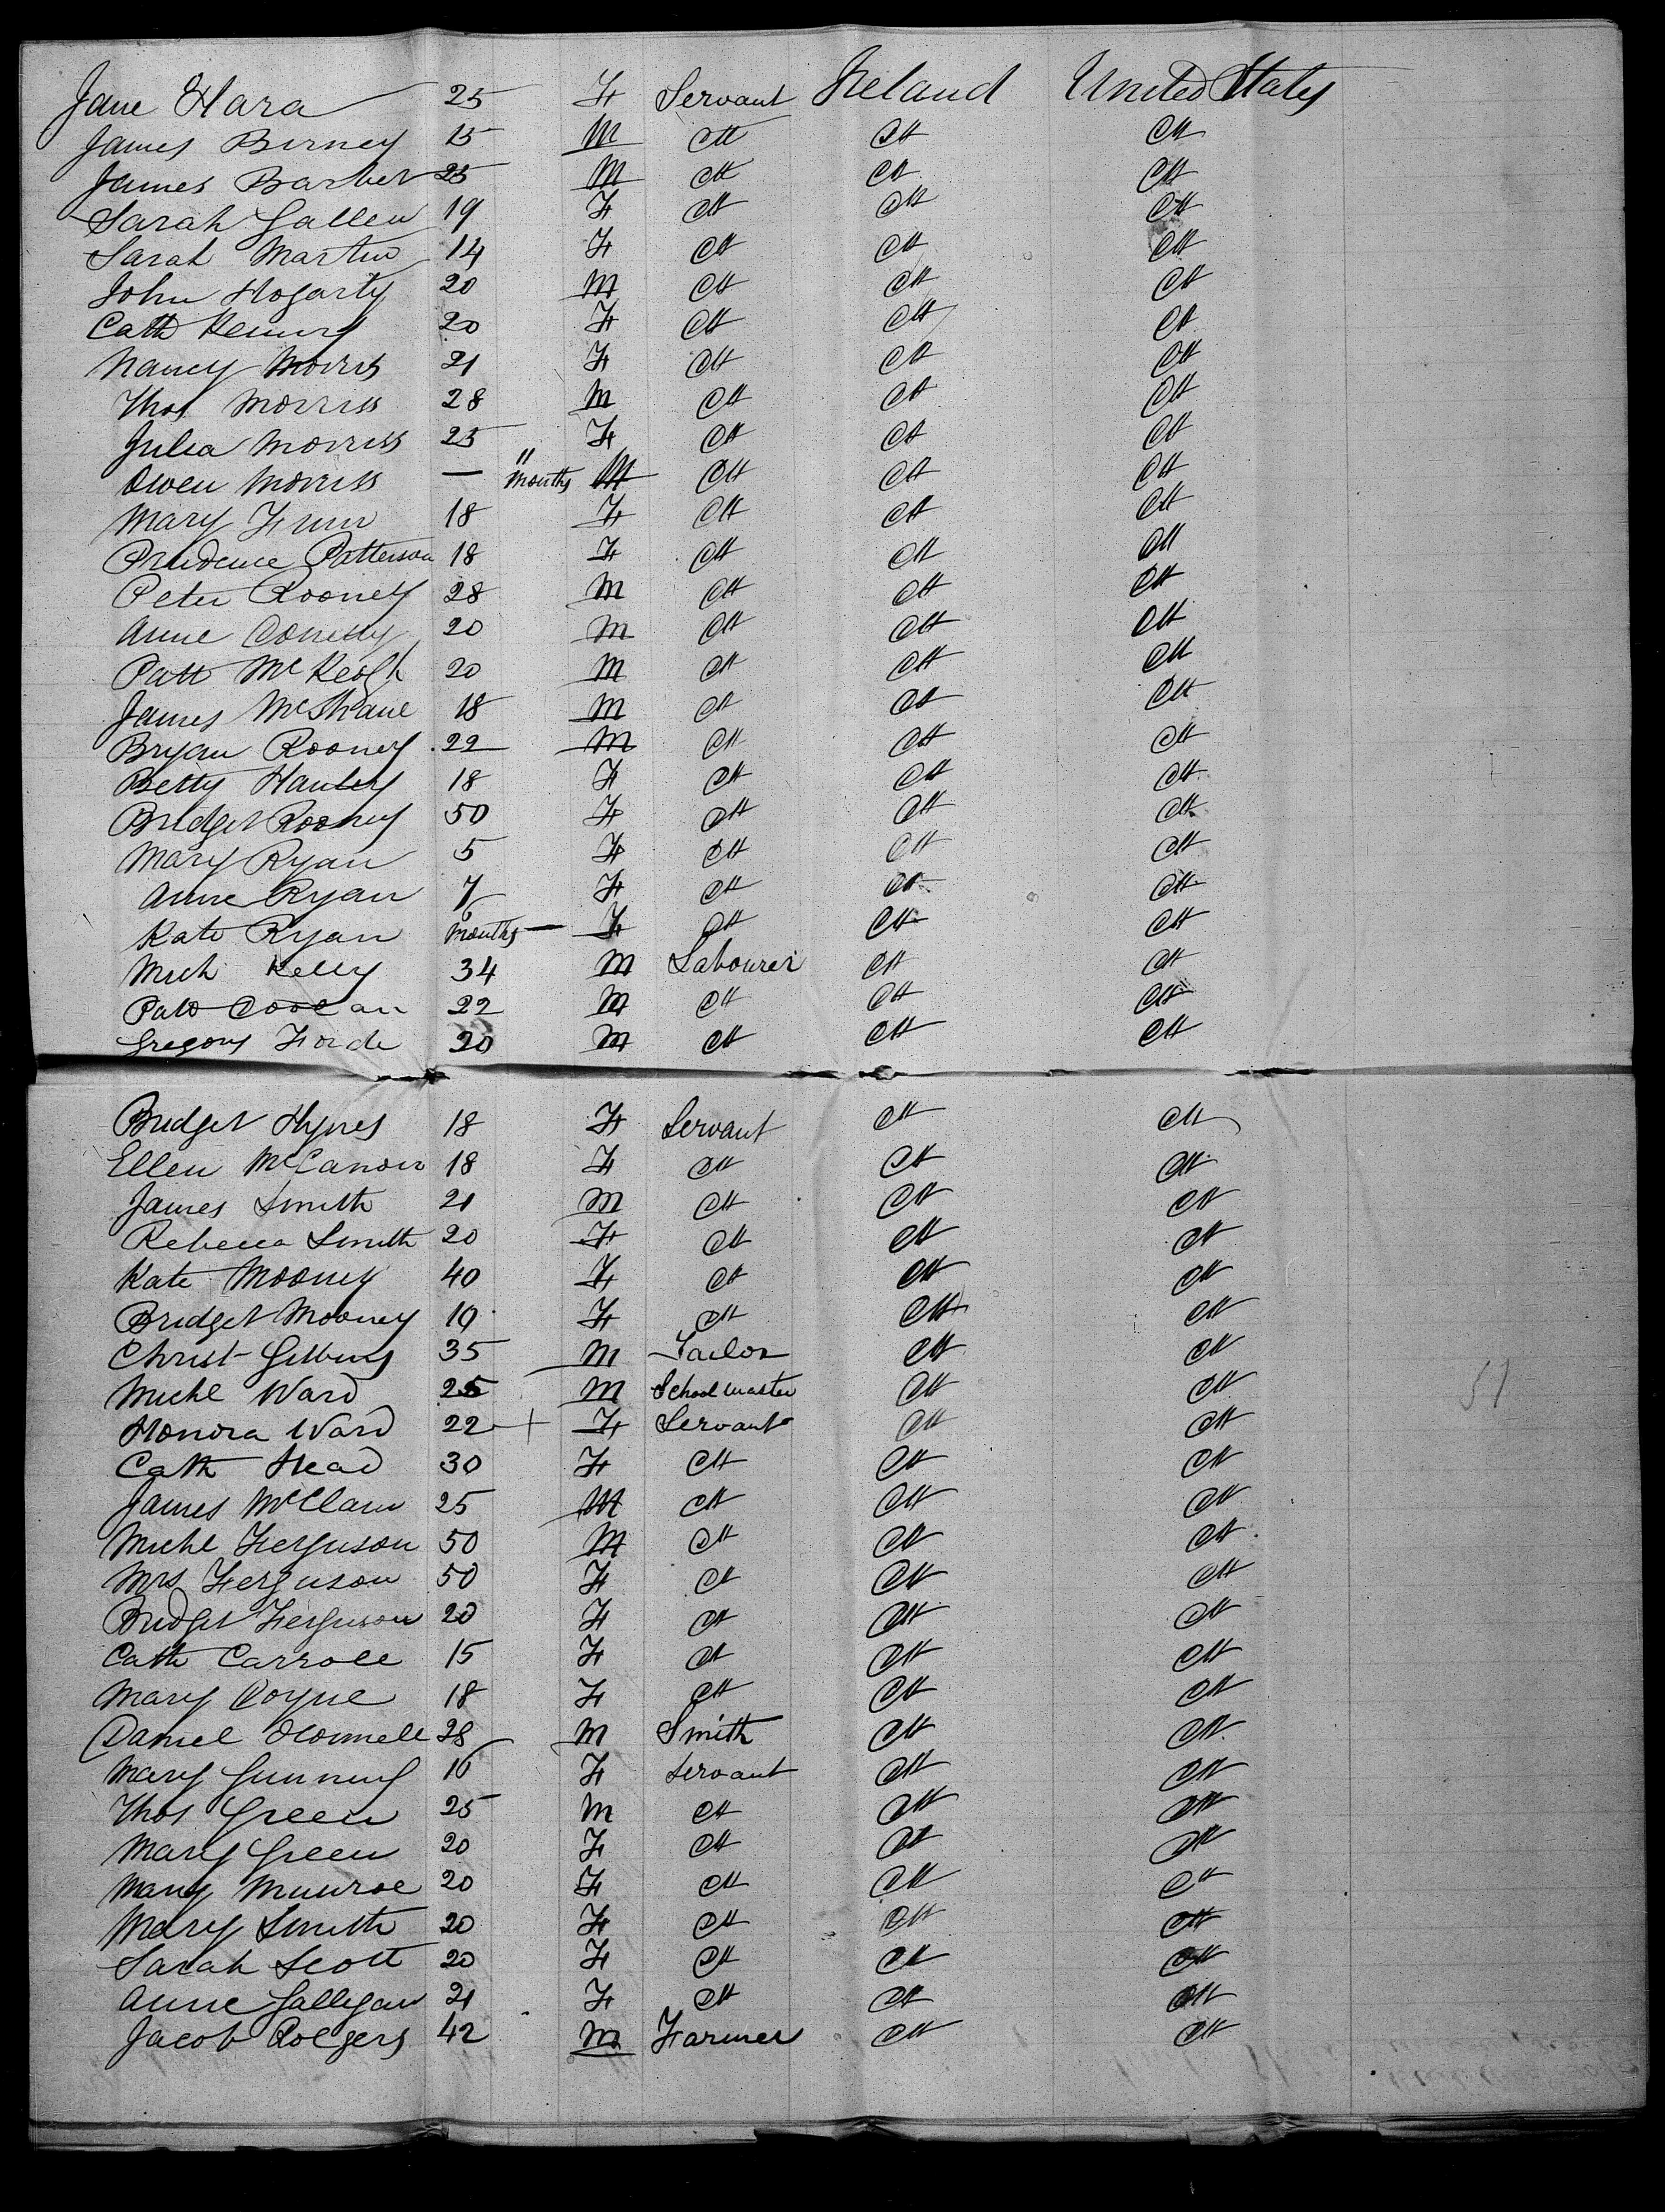 Jane Hara 25 F Servant Ireland United States
James Birney 15 M do do do
James Barber 25 M do do do
Sarah Gallen 19 F do do do
Sarah Martin 14 F do do do
John Hogarty 20 M do do do
Cath 20 F do do do
Nancy Morris 21 F do do do
Thos Morriss 28 M do do do
Julia Morriss 25 F do do do
Owen Morriss — 11 Months M do do do
Mary Finn 18 F do do do
Prudence Patterson 18 F do do do
Peter Rooney 28 M do do do
Anne 20 M do do do
Patt McKeogh 20 M do do do
James McShane 18 M do do do
Bryan Rooney 22 M do do do
Betty Hanley 18 F do do do
Bridget Rooney 50 F do do do
Mary Ryan 5 F do do do
Anne Ryan 7 F do do do
Kate Ryan 6 Months — F do do do
Mich Kelly 34 M Labourer do do
Patt Coolan 22 M do do do
Gregory Forde 20 M do do do
Bridget Hynes 18 F Servant do do
Ellen 18 F do do do
James Smith 21 M do do do
Rebecca Smith 20 F do do do
Kate Mooney 40 F do do do
Bridget Mooney 19 F do do do
Christ Gibbins 35 M Tailor do do
Michl Ward 25 M School master do do
Honora Ward 22 + F Servant do do
Cath Head 30 F do do do
James McClain 25 M do do do
Michl Ferguson 50 M do do do
Mrs Ferguson 50 F do do do
Bridget Ferguson 20 F do do do
Cath Carroll 15 F do do do
Mary Coyne 18 F do do do
Daniel OConnell 28 M Smith do do
Mary Gunning 16 F Servant do do
Thos Green 25 M do do do
Mary Green 20 F do do do
Mary Munroe 20 F do do do
Mary Smith 20 F do do do
Sarah Scott 20 F do do do
Anne Galligan 21 F do do do
Jacob Rodgers 42 M Farmer do do
51